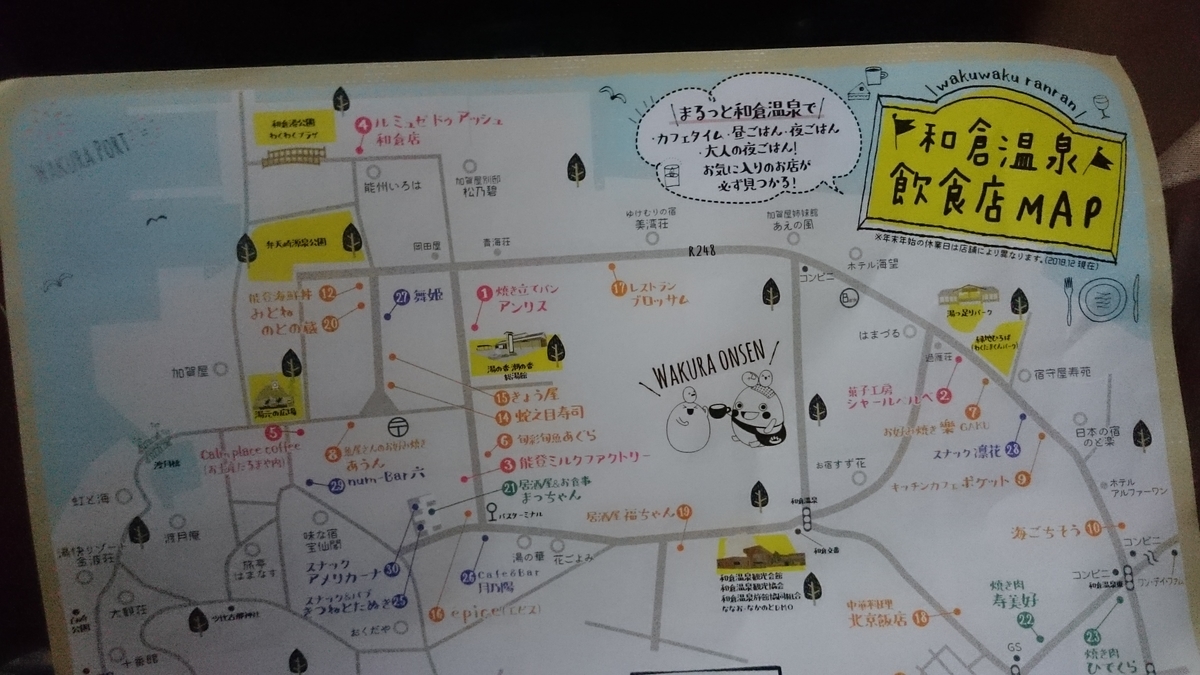 WAKURA PORT
和倉港公園
わくわくプラザ
4 ルミュゼ ドゥ アッシュ
和倉店
能州いろは
加賀屋別邸
松乃碧
まるっと和倉温泉で
・カフェタイム・昼ごはん・夜ごはん
・大人の夜ごはん!
お気に入りのお店が
必ず見つかる!
wakuwaku ranran
和倉温泉
飲食店MAP
※年末年始の休業日は店舗により異なります。(2018.12現在)
弁天崎源泉公園
岡田屋
青海荘
ゆけむりの宿
美湾荘
加賀屋姉妹館
あえの風
R248
コンビニ
ホテル海望
能登海鮮丼
みとね 12
のとの蔵 20
27 舞姫
1 焼き立てパン
アンリス
17 レストラン
ブロッサム
湯っ足りパーク
はまづる
加賀屋
湯元の広場
総湯館
WAKURA ONSEN!
宿守屋寿苑
15 きょう屋
14 蛇之目寿司
6 旬彩旬魚あぐら
3 能登ミルクファクトリー
21 居酒屋&お食事
まっちゃん
菓子工房
シャールベルベ 2
7
お好み焼き 樂 GAKU
スナック 凛花 28
キッチンカフェ ポケット 9
日本の宿
のと楽
ホテル
アルファーワン
5
Cab place coffee
8
あうん
29 num-Bar 六
お宿すず花
和倉温泉
バスターミナル
居酒屋 福ちゃん 19
海ごちそう 10
虹と海
渡月庵
味な宿
宝仙閣
湯快リゾート
金波荘
旅亭
はまなす
スナック
アメリカーナ 30
スナック&パブ
きつねとたぬき 25
26 Cafe&Bar
月乃陽
湯の華
花ごよみ
16 epice(エピス)
和倉交番
和倉温泉観光会館
和倉温泉観光協会
和倉温泉旅館協同組合
ななお・なかのとDMO
コンビニ
コンビニ
和倉温泉東
大観荘
公園
おくだや
十番館
中華料理
北京飯店 18
焼き肉
寿美好
22
GS
23
焼き肉
ひでくら